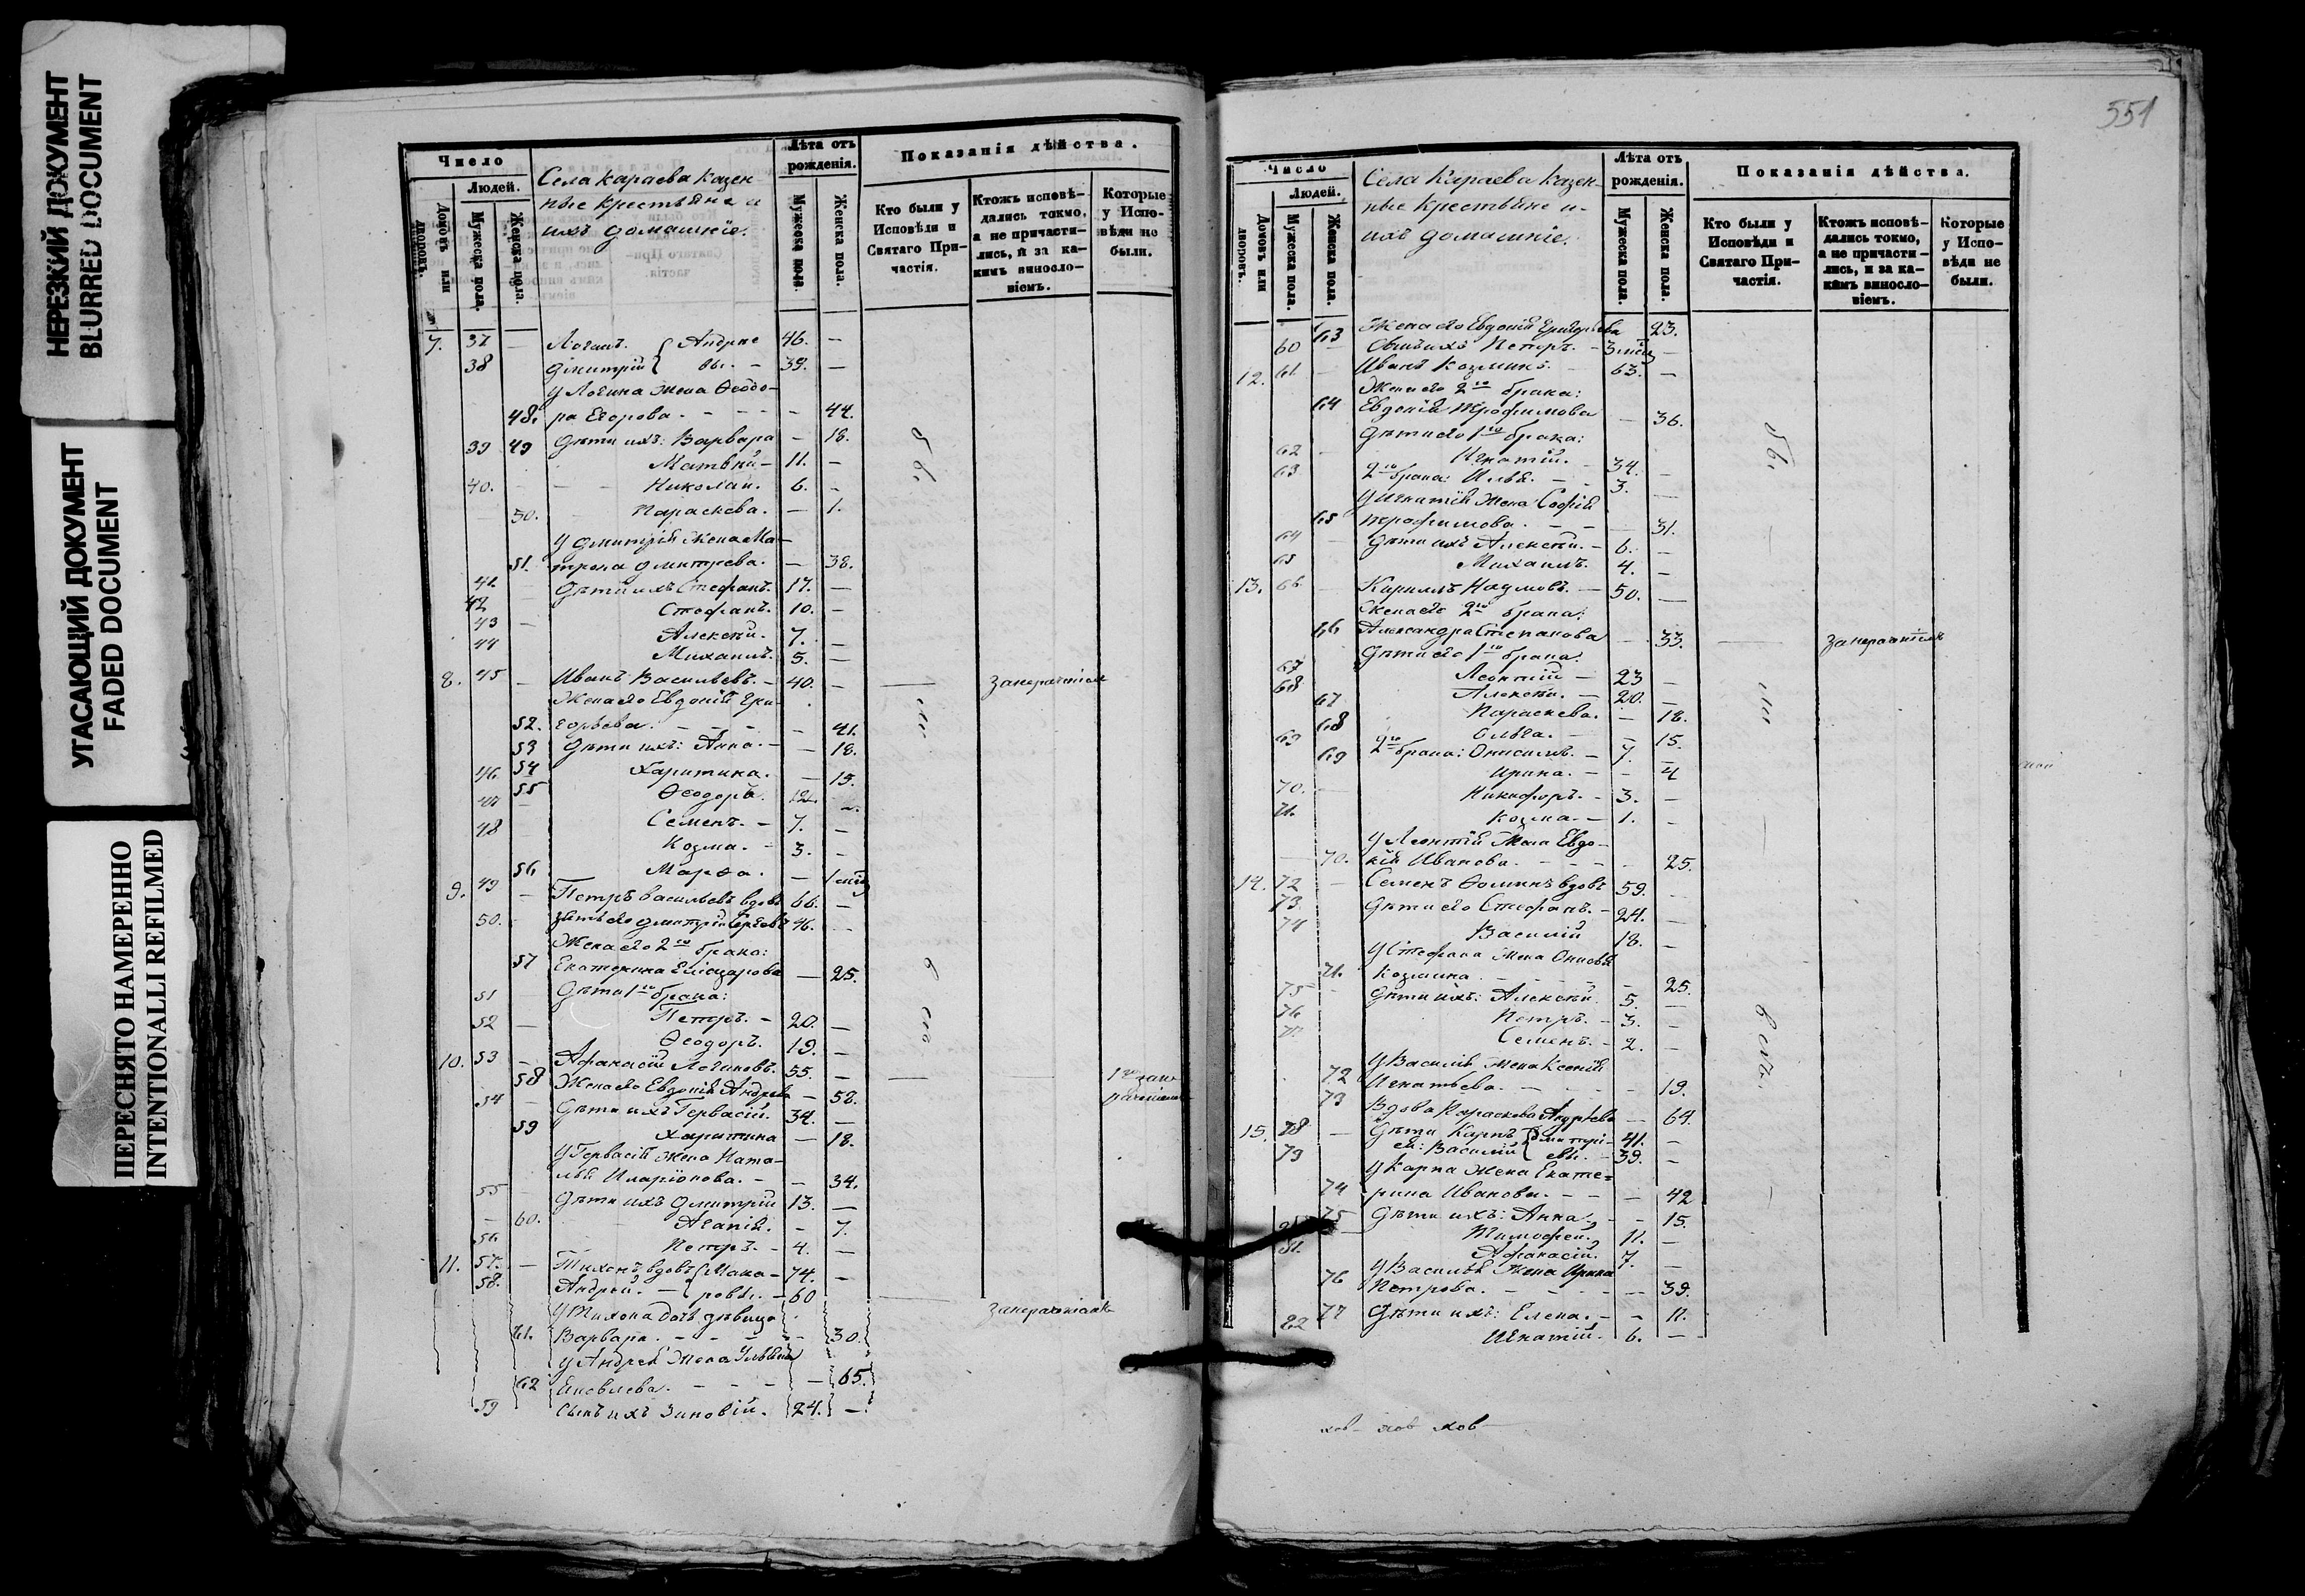 НЕРЕЗКИЙ ДОКУМЕНТ
BLURRED DOCUMENT
УГАСАЮЩИЙ ДОКУМЕНТ
FADED DOCUMENT
ПЕРЕСНЯТО НАМЕРЕННО
INTENTIONALLI REFILMED
Число
Людей.
Домовъ или дворовъ.
Мужеска пола.
Женска пола.
Села Караева Казен
ные крестьяне и
ихъ домашніе.
Лѣта отъ рожденія.
Мужеска пола.
Женска пола.
Показанія дѣйства.
Кто были у Исповѣди и Святаго При-
частія.
Ктожъ исповѣ-
дались токмо,
а не причасти-
лись, и за ка-
кимъ винosло-
віемъ.
Которые
у Испо-
вѣди не
были.
7. 37 — Логинъ. Андрее 46. —
38 Димитрій вы. — 39. —
У Логина жена Ѳеодо-
48. ра Егорова. — — 44.
39 49 Дѣти ихъ: Варвара — 18.
Матвѣй — 11. —
40. Николай. 6. —
50. Параскева. — 1.
У Димитрія жена Ма-
51. трона Дмитрева. — 38.
41. Дѣти ихъ Стефанъ. 17. —
42 Стефанъ. 10. —
43 Алексѣй. 7. —
44 Михаилъ. 5. —
8. 45 — Иванъ Васильевъ. — 40. —
Жена его Евдокія Гри-
52. горьева. — — 41.
53 Дѣти ихъ: Анна. — — 18.
54 Харитина. — 15.
46 55 Ѳеодора. 12.
47 Семенъ. — 7. —
48 Козма. — 3. —
56 Марѳа. —
9. 49 — Петръ Васильевъ вдовъ 66. —
50. Зять его Димитрій Сергѣевъ 46. —
Жена его 2го брака:
57 Екатерина Елиазарова — 25.
51 Дѣти 1го брака:
Петръ. — 20. —
52 — Ѳеодоръ. 19. —
10. 53 — Афанасій Логиновъ. 55. —
58 Жена его Евдокія Андреева — 58.
54 Дѣти ихъ Гервасій. 34. —
59 Харитина — 18.
У Гервасія жена Ната-
лья Иларіонова. — — 34.
55 Дѣти ихъ Дмитрій 13. —
60. Агапія. — 7.
56 Петръ. — 4. —
11. 57. — Тихонъ вдовъ Мака- 74. —
58. Андрей. — ровы. — 60
У Тихона дочь дѣвица
61. Варвара. — — 30.
У Андрея жена Ульяна
62 Яковлева. — — 65.
59 Сынъ ихъ Зиновій. 24. —
551
Число
Людей.
Домовъ или дворовъ.
Мужеска пола.
Женска пола.
Села Караева Казен-
ные крестьяне и
ихъ домашніе.
Лѣта отъ рожденія.
Мужеска пола.
Женска пола.
Показанія дѣйства.
Кто были у
Исповѣди и
Святаго При-
частія.
Ктожъ исповѣ-
дались токмо,
а не причасти-
лись, и за ка-
кимъ винослo-
віемъ.
Которые
у Испо-
вѣди не
были.
63 Жена его Евдокія Григорьева 23.
60 — Сынъ ихъ Петръ. —
12. 61 — Иванъ Козминъ. 63. —
Жена его 2го брака:
64 Евдокія Трофимова — 36.
Дѣти его 1го брака:
62 Игнатій. — 34. —
63 2го брака: Илья. — 3. —
У Игнатія жена Софія
65 Трофимова. — — 31.
64 Дѣти ихъ Алексѣй. — 6. —
65 Михаилъ. 4. —
13. 66 Кирилъ Наумовъ. — 50. —
Жена его 2го брака:
66 Александра Степанова — 33.
Дѣти его 1го брака:
67 Леонтій — 23 —
68 Алексѣй. — 20. —
67 Параскева. — 18.
68 Ольга. — — 15.
69 2го брака: Онисимъ. — 7. —
69 Ирина. — — 4
70. Никифоръ. — 3. —
71. Козма. — 1. —
У Леонтія жена Евдо-
70. кія Иванова. — — 25.
14. 72 — Семенъ Ѳоминъ вдовъ 59. —
73 Дѣти его Стефанъ. — 24. —
74 Василій 18. —
У Стефана жена
71. Козмина — — 25.
75 Дѣти ихъ: Алексѣй 5. —
76 Петръ. — 3. —
77 Семенъ. — 2. —
У Василія жена Ксенія
72 Игнатьева. — — 19.
73 Вдова Параскева Андреева — 64.
15. 78 — Дѣти Карпъ Дмитрі- 41. —
79 ея: Василій евы. — 39. —
У Карпа жена Екате-
74 рина Иванова. — — 42
75 Дѣти ихъ: Анна. — 15.
Тимофей. 11. —
81. Афанасій. 7. —
У Василія жена Ирина
76 Петрова. — — 39.
77 Дѣти ихъ: Елена. — — 11.
82 Игнатій. 6. —